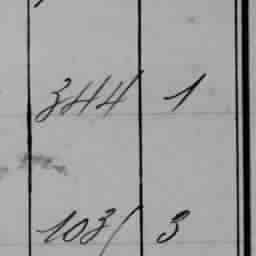 344 1
103 3